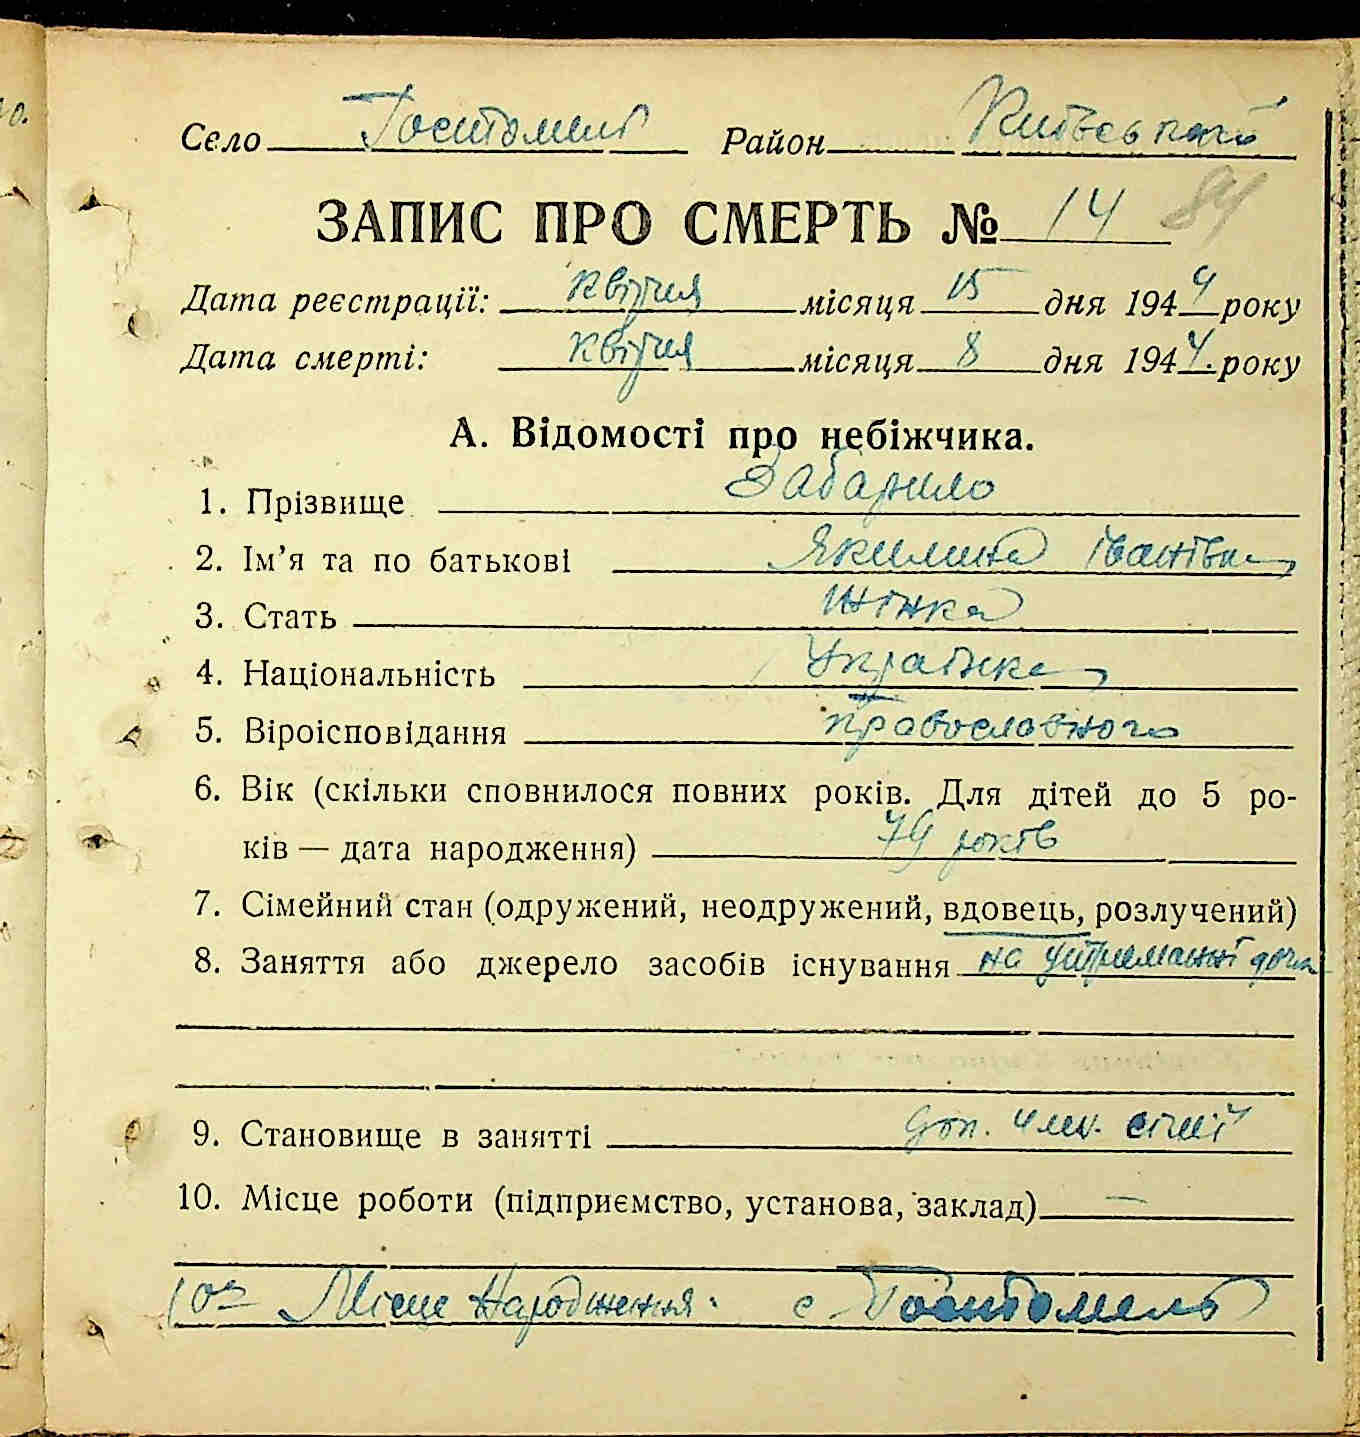 Село Гостомель Район Київської
ЗАПИС ПРО СМЕРТЬ № 14 84
Дата реєстрації: квітня місяця 15 дня 1944 року
Дата смерті: квітня місяця 8 дня 1944. року
А. Відомості про небіжчика.
1. Прізвище Забарило
2. Ім'я та по батькові Якилина Іванівна
3. Стать жінка
4. Національність Українка
5. Віроісповідання православного
6. Вік (скільки сповнилося повних років. Для дітей до 5 ро-
ків — дата народження) 79 років
7. Сімейний стан (одружений, неодружений, вдовець, розлучений)
8. Заняття або джерело засобів існування на утриманні
9. Становище в занятті доп. член. сім'ї
10. Місце роботи (підприємство, установа, заклад) —
10а Місце народження. с Гостомель